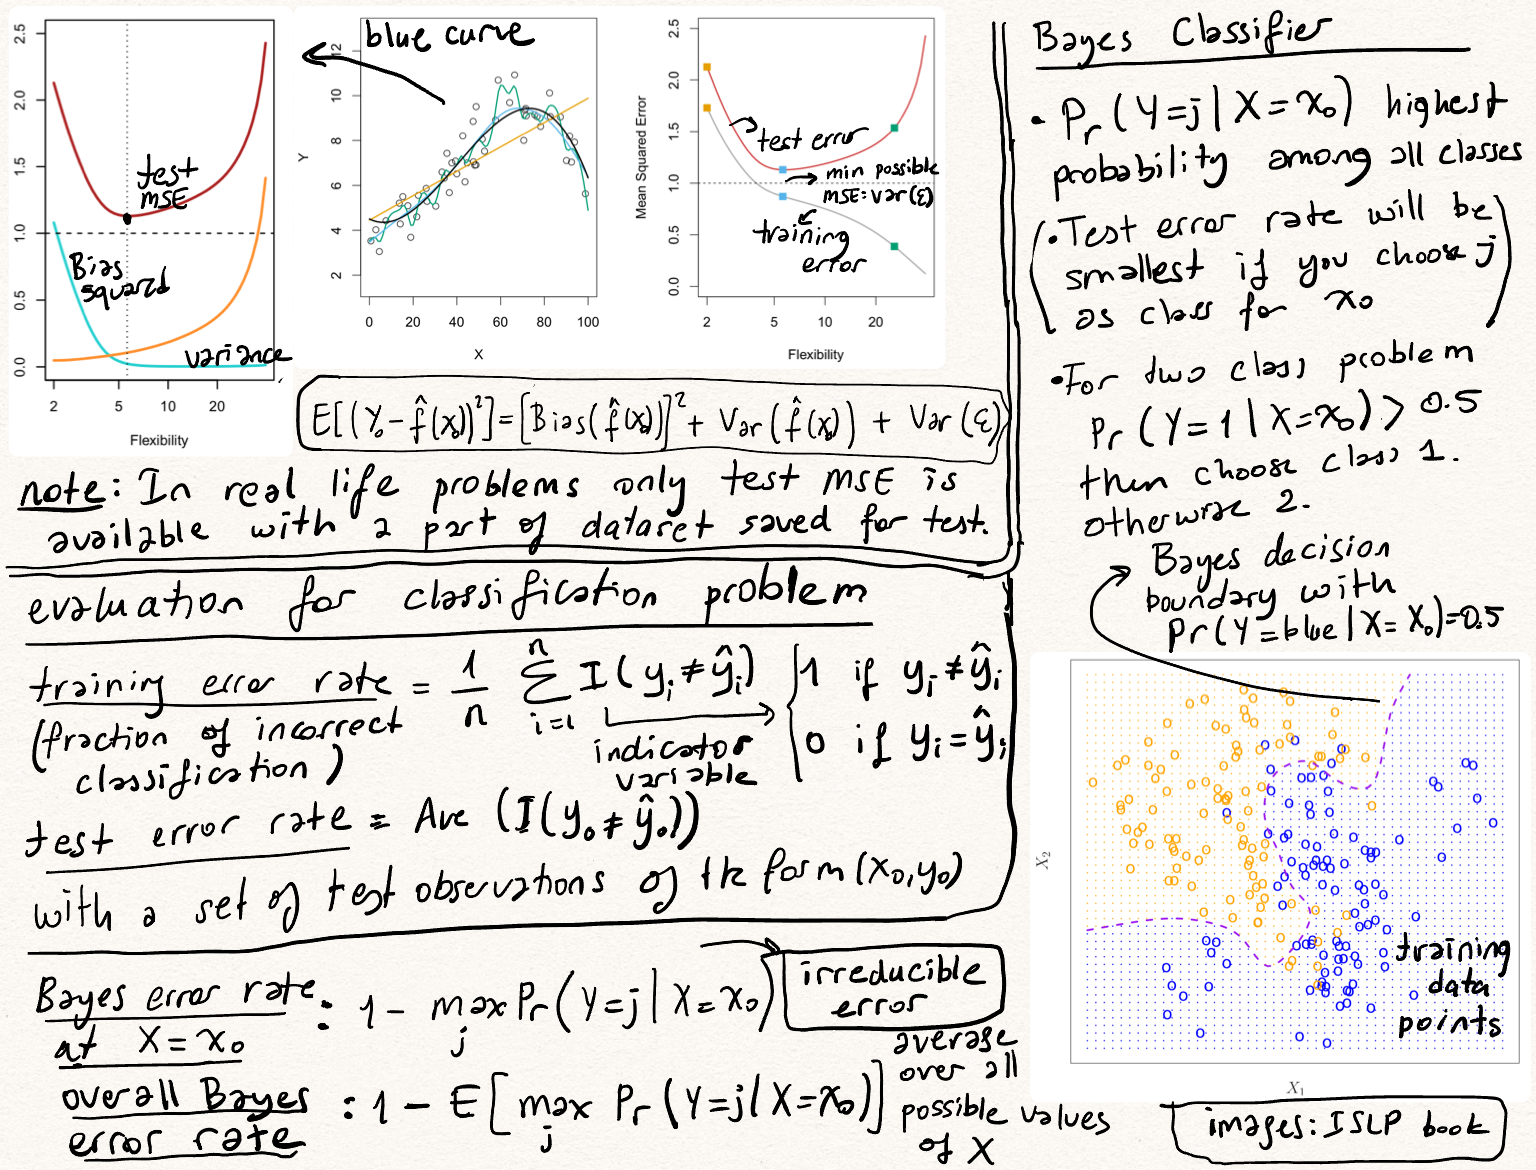 2.5
2.0
1.5
1.0
0.5
0.0
2 5 10 20
Flexibility
test
MSE
Bias
squared
variance
blue curve
12
10
8
6
4
2
Y
0 20 40 60 80 100
X
2.5
2.0
1.5
1.0
0.5
0.0
Mean Squared Error
2 5 10 20
Flexibility
test error
min possible
MSE: Var(ε)
training
error
E[(Y₀-f̂(x₀))²] = [Bias(f̂(x₀))]² + Var(f̂(x₀)) + Var(ε)
note: In real life problems only test MSE is
available with a part of dataset saved for test.
evaluation for classification problem
training error rate = 1/n Σ i=1 n I(yᵢ ≠ ŷᵢ) { 1 if yᵢ ≠ ŷᵢ
0 if yᵢ = ŷᵢ
(fraction of incorrect
classification)
indicator
variable
test error rate = Ave (I(y₀ ≠ ŷ₀))
with a set of test observations of the form (x₀,y₀)
Bayes error rate
at X = x₀
: 1 - max j Pr(Y=j | X=x₀)
irreducible
error
overall Bayes
error rate
: 1 - E[max j Pr(Y=j | X=x₀)]
average
over all
possible values
of X
Bayes Classifier
• Pr(Y=j | X=x₀) highest
probability among all classes
(• Test error rate will be
smallest if you choose j
as class for x₀)
• For two class problem
Pr(Y=1 | X=x₀) > 0.5
then choose class 1.
otherwise 2.
Bayes decision
boundary with
Pr(Y=blue | X=X₀)=0.5
X₂
X₁
training
data
points
images: ISLP book